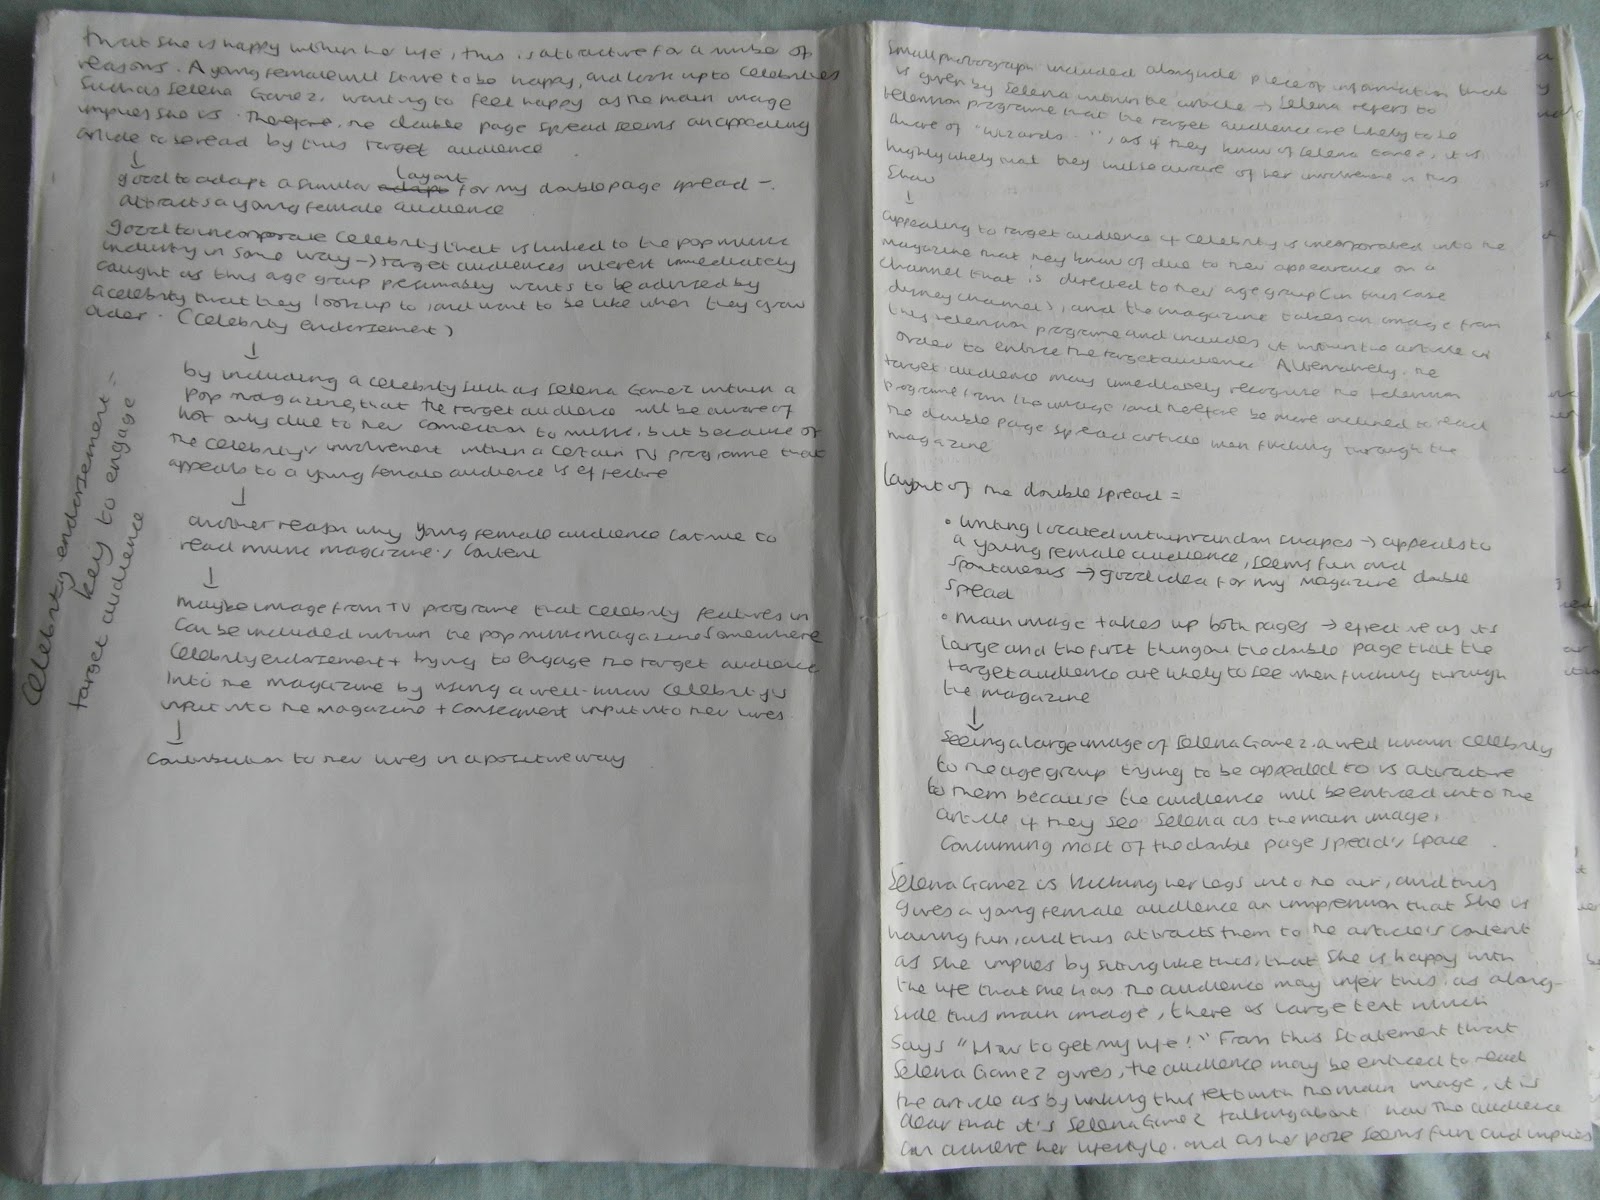 that she is happy within her life, this is attractive for a number of
reasons. A young female will strive to be happy, and look up to celebrities
such as Selena Gomez, wanting to feel happy as the main image
implies she is. Therefore, the double page spread seems an appealing
article to read by this target audience
↓
good to adapt a similar layout for my double page spread -
attracts a young female audience
good to incorporate celebrity that is linked to the pop music
industry in some way → target audiences interest immediately
caught as this age group presumably wants to be advised by
a celebrity that they look up to, and want to be like when they grow
older. (celebrity endorsement)
↓
by including a celebrity such as Selena Gomez within a
pop magazine, that the target audience will be aware of
not only due to her connection to music, but because of
the celebrity's involvement within a certain TV programme that
appeals to a young female audience is effective
↓
another reason why young female audience continue to
read music magazine's content
↓
maybe image from TV programme that celebrity features in
can be included within the pop music magazine somewhere
celebrity endorsement + trying to engage the target audience
into the magazine by using a well-known celebrity's
input into the magazine + consequent input into their lives
↓
contribution to their lives in a positive way
Celebrity endorsement =
key to engage
target audience
Small photograph included alongside piece of information that
is given by Selena within the article → Selena refers to
television programme that the target audience are likely to be
aware of "Wizards..", as if they know of Selena Gomez, it is
highly likely that they will be aware of her involvement in this
show
↓
appealing to target audience if celebrity is incorporated into the
magazine that they know of due to her appearance on a
channel that is directed to their age group (in this case
disney channel), and the magazine takes an image from
this television programme and includes it within the article in
order to entice the target audience. Alternatively, the
target audience may immediately recognise the television
programme from the image and therefore be more inclined to read
the double page spread article when flicking through the
magazine
Layout of the double spread =
• Writing located within random shapes → appeals to
a young female audience, seems fun and
spontaneous → good idea for my magazine double
spread
• Main image takes up both pages → effective as it's
large and the first thing on the double page that the
target audience are likely to see when flicking through
the magazine
↓
Seeing a large image of Selena Gomez, a well known celebrity
to the age group trying to be appealed to is attractive
to them because the audience will be enticed into the
article if they see Selena as the main image,
consuming most of the double page spread's space.
Selena Gomez is kicking her legs into the air, and this
gives a young female audience an impression that she is
having fun, and this attracts them to the article's content
as she implies by sitting like this, that she is happy with
the life that she has. The audience may infer this, as along-
side this main image, there is large text which
says "How to get my life!" From this statement that
Selena Gomez gives, the audience may be enticed to read
the article as by linking this text with the main image, it is
clear that it's Selena Gomez talking about how the audience
can achieve her lifestyle. and as her pose seems fun and implies